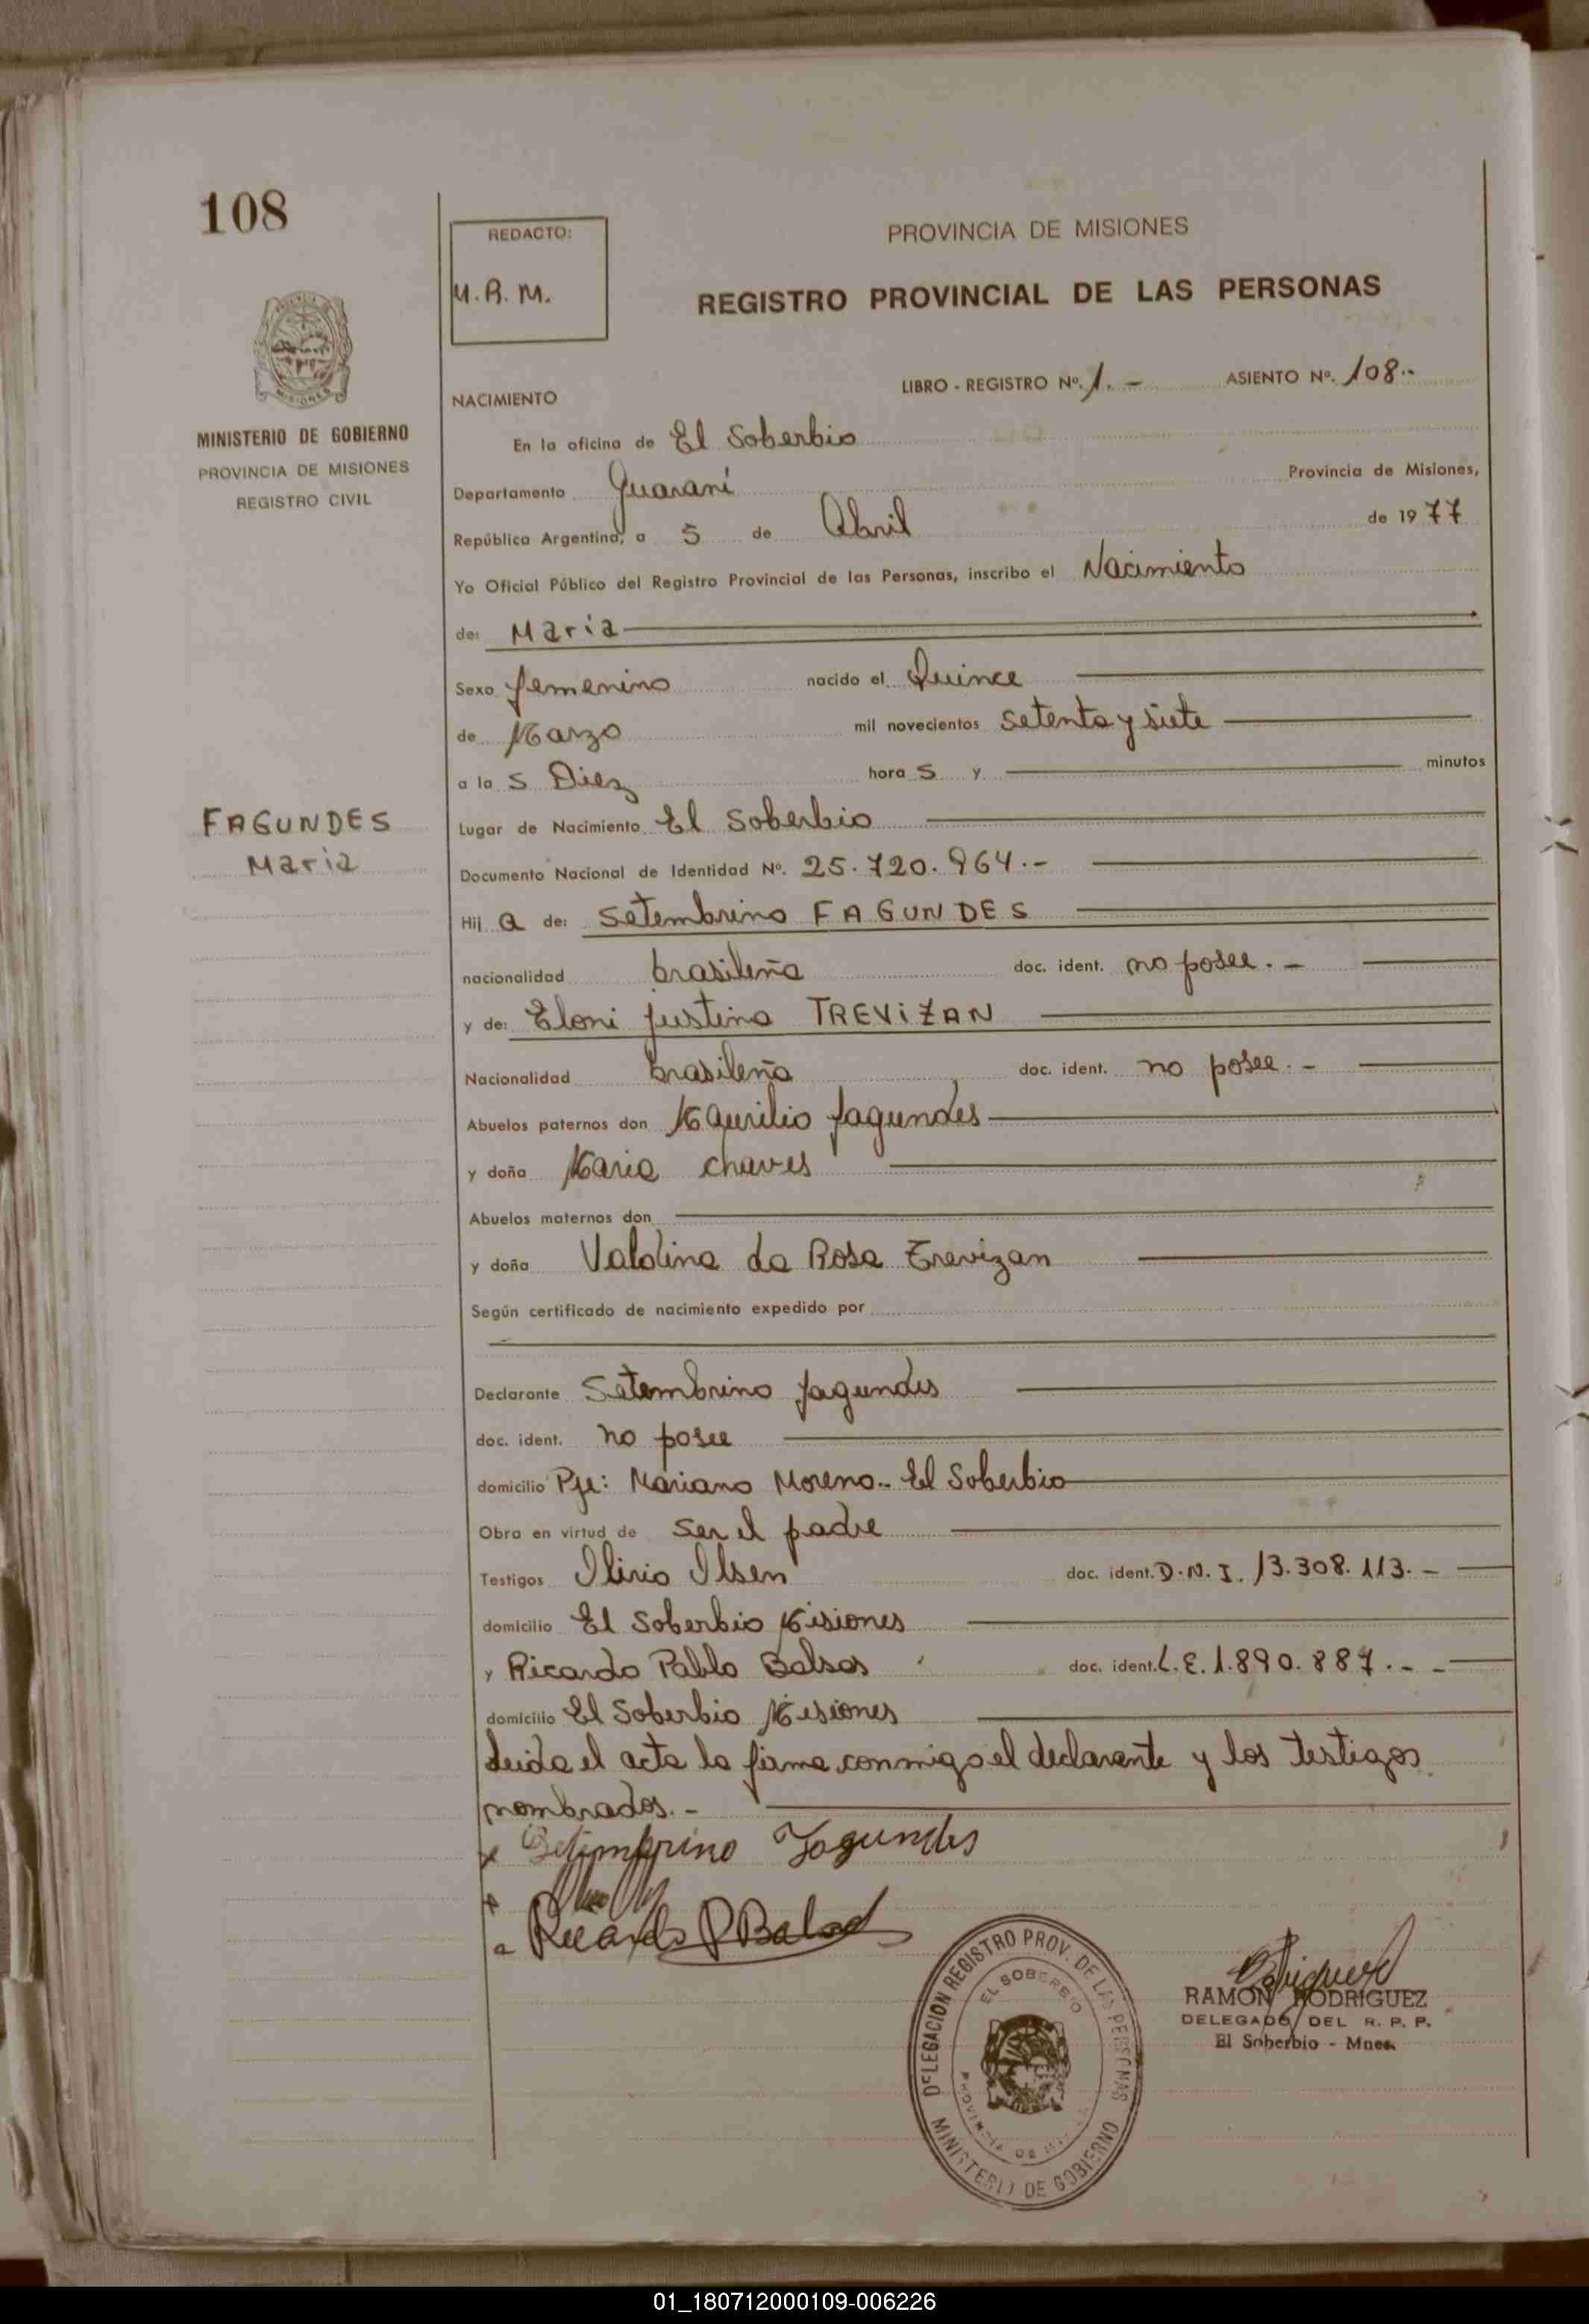 108
REDACTO:
M.R.M.
PROVINCIA DE MISIONES
REGISTRO PROVINCIAL DE LAS PERSONAS
MINISTERIO DE GOBIERNO
PROVINCIA DE MISIONES
REGISTRO CIVIL
LIBRO - REGISTRO Nº. 1. - ASIENTO Nº. 108.-
NACIMIENTO
En la oficina de El Soberbio
Departamento Guaraní Provincia de Misiones,
República Argentina, a 5 de Abril de 1977
Yo Oficial Público del Registro Provincial de las Personas, inscribo el Nacimiento
de: Maria
Sexo femenino nacido el Quince
de Marzo mil novecientos setenta y siete
a la s Diez hora s y minutos
FAGUNDES
Maria
Lugar de Nacimiento El Soberbio
Documento Nacional de Identidad Nº. 25.720.964.-
Hij a de: Setembrino FAGUNDES
nacionalidad brasileña doc. ident. no posee. -
y de: Eloni Justina TREVIZAN
Nacionalidad brasileña doc. ident. no posee. -
Abuelos paternos don Maurilio fagundes
y doña Maria chaves
Abuelos maternos don
y doña Valdina da Rosa Trevizan
Según certificado de nacimiento expedido por
Declarante Setembrino fagundes
doc. ident. no posee
domicilio Pje: Mariano Moreno.- El Soberbio
Obra en virtud de ser el padre
Testigos Ilirio Ilsen doc. ident. D.N.I. 13.308.113. -
domicilio El Soberbio Misiones
y Ricardo Pablo Balsas doc. ident. L.E. 1.890.887. - -
domicilio El Soberbio Misiones
Leida el acta la firma conmigo el declarante y los testigos
nombrados. -
x Setembrino Fagundes
Ricardo P Balsas
DELEGACION REGISTRO PROV. DE LAS PERSONAS
EL SOBERBIO
PROVINCIA DE
MINISTERIO DE GOBIERNO
RAMON RODRIGUEZ
DELEGADO DEL R. P. P.
El Soberbio - Mnes.
01_180712000109-006226